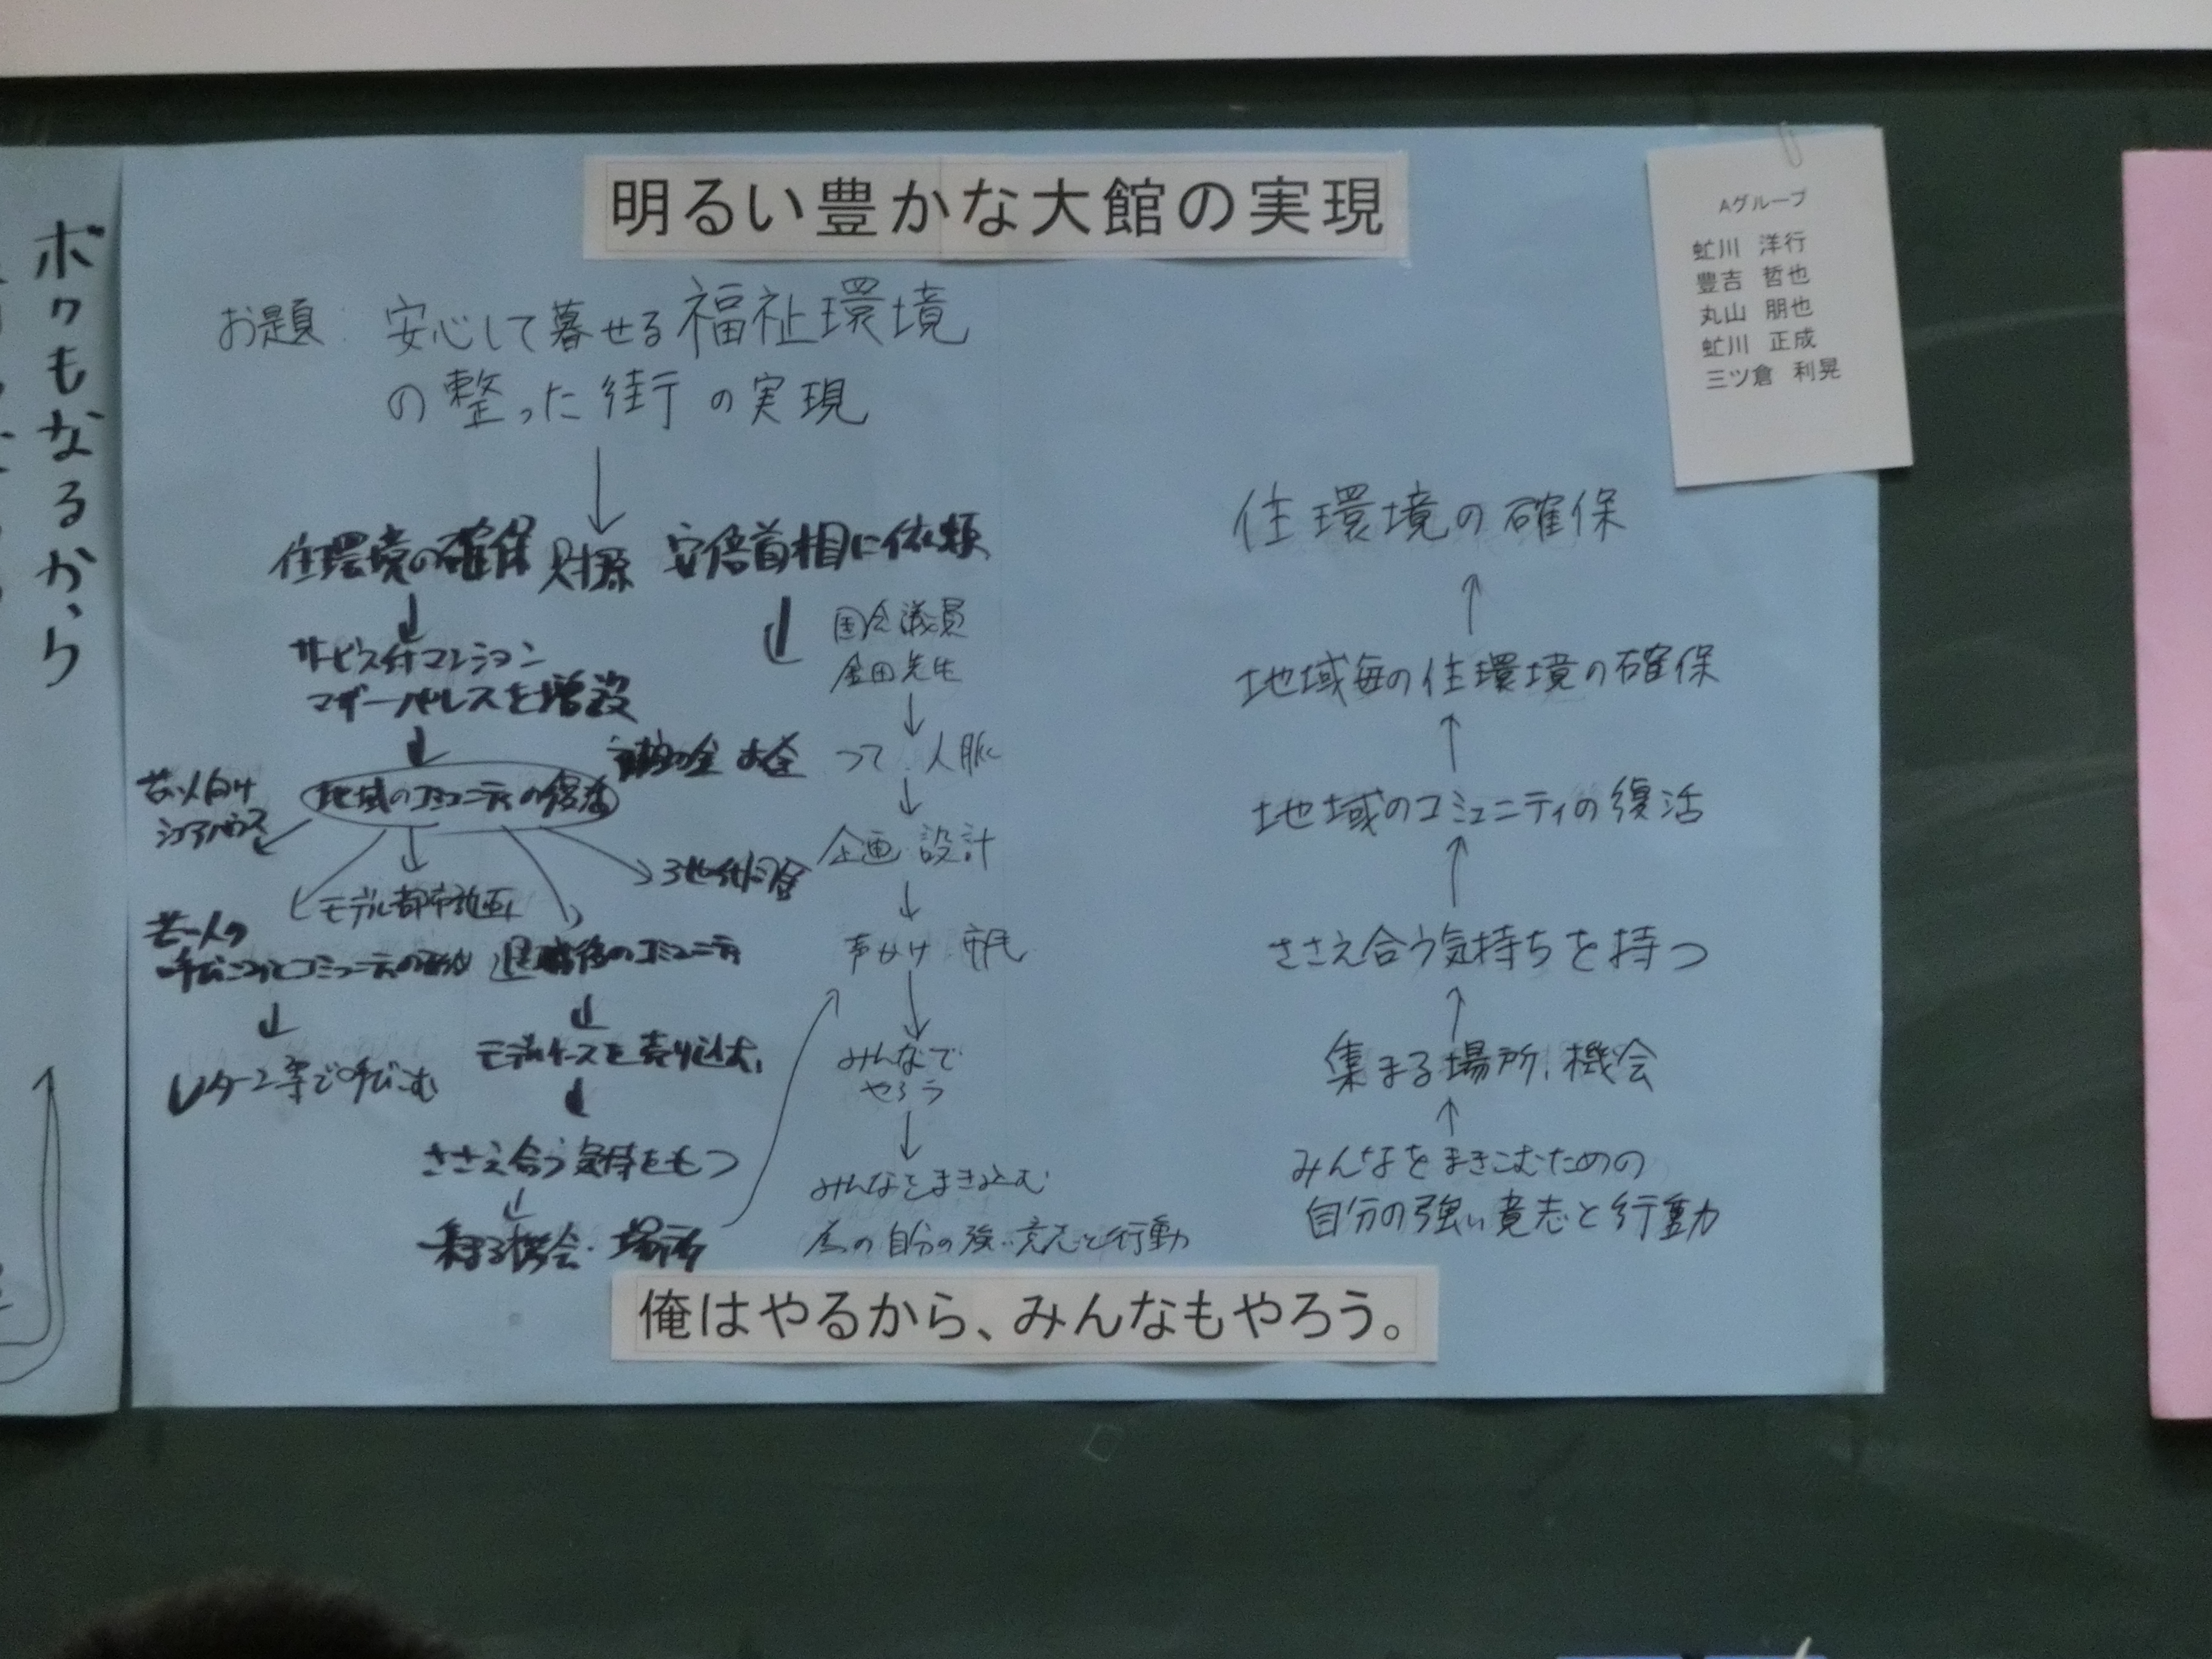 ボクもなるから
明るい豊かな大館の実現
Aグループ
虻川 洋行
豊吉 哲也
丸山 朋也
虻川 正成
三ツ倉 利晃
お題: 安心して暮せる福祉環境
の整った街の実現
住環境の確保 財源 安倍首相に依頼
サービス付マンション
マザーパレスを増設
地域のコミュニティの復活
若い人向け
シェアハウス
モデル都市計画
3世代同居
若い人の
退職後のコミュニティ
Uターン等で呼びこむ
モデルケースを売り込む
ささえ合う気持をもつ
集まる機会・場所
補助金 お金
国会議員
金田先生
つて 人脈
企画 設計
声かけ 市民
みんなで
やろう
みんなをまき込む
為の自分の強い意志と行動
住環境の確保
地域毎の住環境の確保
地域のコミュニティの復活
ささえ合う気持ちを持つ
集まる場所、機会
みんなをまきこむための
自分の強い意志と行動
俺はやるから、みんなもやろう。